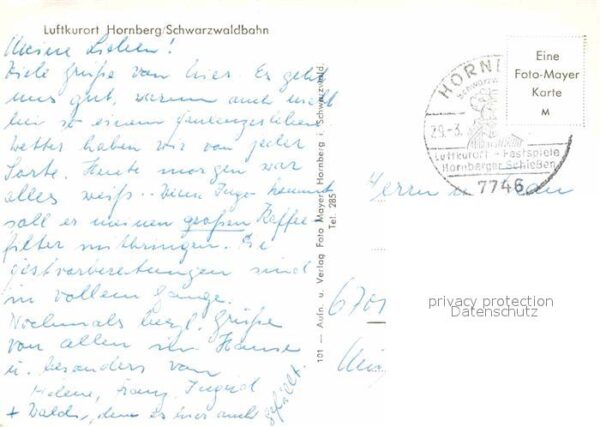 Luftkurort Hornberg/Schwarzwaldbahn
Meine Lieben!
Viele Grüße von hier. Es geht
uns gut, warum auch nicht
bei so einem
Wetter haben wir von jeder
Sorte. Heute morgen war
alles weiß.. Wenn Ingo kommt
soll er meinen großen Kaffee
filter mitbringen. Die
Festvorbereitungen sind
in vollem Gange.
Nochmals herzl. Grüße
von allen im Hause
u. besonders von
Helene, Ingrid
+ Waldi, dem es hier auch
gefällt.
101 — Aufn. u. Verlag Foto Mayer, Hornberg i. Schwarzwald.
Tel. 285
Eine
Foto-Mayer
Karte
M
HORN
29.-3.
Luftkurort - Festspiele
Hornberger Schießen
7746
Herrn u.
6701
privacy protection
Datenschutz